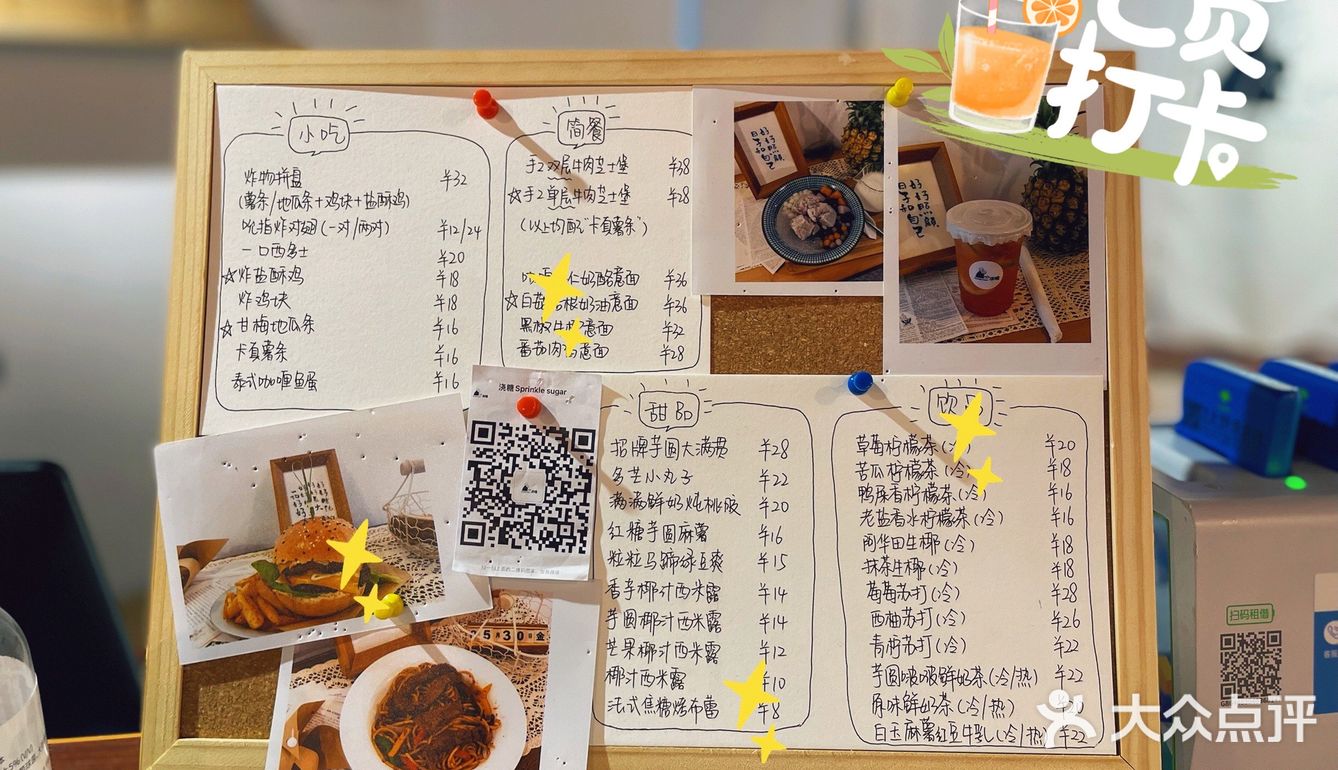 打卡
小吃
炸物拼盘 ¥32
(薯条/地瓜条+鸡块+盐酥鸡)
吮指炸对翅(一对/两对) ¥12/24
一口西多士 ¥20
☆炸盐酥鸡 ¥18
炸鸡块 ¥18
☆甘梅地瓜条 ¥16
卡真薯条 ¥16
泰式咖喱鱼蛋 ¥16
简餐
手工双层牛肉芝士堡 ¥38
☆手工单层牛肉芝士堡 ¥28
(以上均配"卡真薯条")
仁奶酪意面 ¥36
☆白菇培根奶油意面 ¥36
黑椒牛 意面 ¥32
番茄肉 意面 ¥28
浇糖 Sprinkle sugar
甜品
招牌芋圆大满贯 ¥28
多芝小丸子 ¥22
满满鲜奶炖桃胶 ¥20
红糖芋圆麻薯 ¥16
粒粒马蹄绿豆爽 ¥15
香芋椰汁西米露 ¥14
芋圆椰汁西米露 ¥14
芒果椰汁西米露 ¥12
椰汁西米露 ¥10
法式焦糖烤布蕾 ¥8
饮品
草莓柠檬茶(冷) ¥20
苦瓜柠檬茶(冷) ¥18
鸭屎香柠檬茶(冷) ¥16
老盐香水柠檬茶(冷) ¥16
阿华田生椰(冷) ¥18
抹茶生椰(冷) ¥18
葡萄苏打(冷) ¥28
西柚苏打(冷) ¥26
青柠苏打(冷) ¥22
芋圆啵啵鲜奶茶(冷/热) ¥22
原味鲜奶茶(冷/热) ¥20
白玉麻薯红豆牛乳(冷/热) ¥22
好好照顾
日子和自己
5 30 金
扫码租借
大众点评